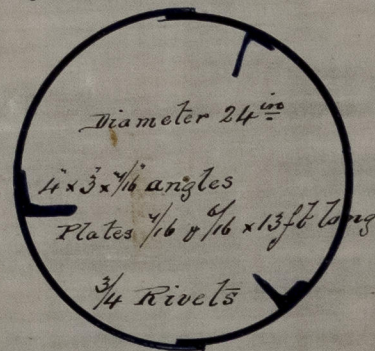 Diameter 24 in
4" x 3" x 7/16" angles
Plates 7/16 & 6/16 x 13 ft long
3/4 Rivets